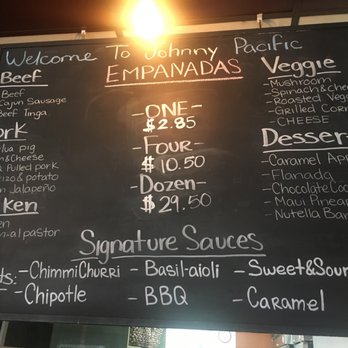 Welcome To Johnny Pacific
EMPANADAS
Beef
Beef
Cajun Sausage
Beef Tinga
pig
&Cheese
Pulled pork
&potato
Jalapeño
al pastor
-ONE-
$2.85
-FOUR-
$10.50
-Dozen-
$29.50
Veggie
-Mushroom
-Spinach&chee
-Roasted Vegg
-Grilled Corn
-CHEESE
Desser
-Caramel App
-Flanada
-Chocolate Coc
-Maui Pineap
-Nutella Ban
Signature Sauces
-ChimmiChurri
-Basil-aioli
-Sweet&Sour
-Chipotle
-BBQ
-Caramel